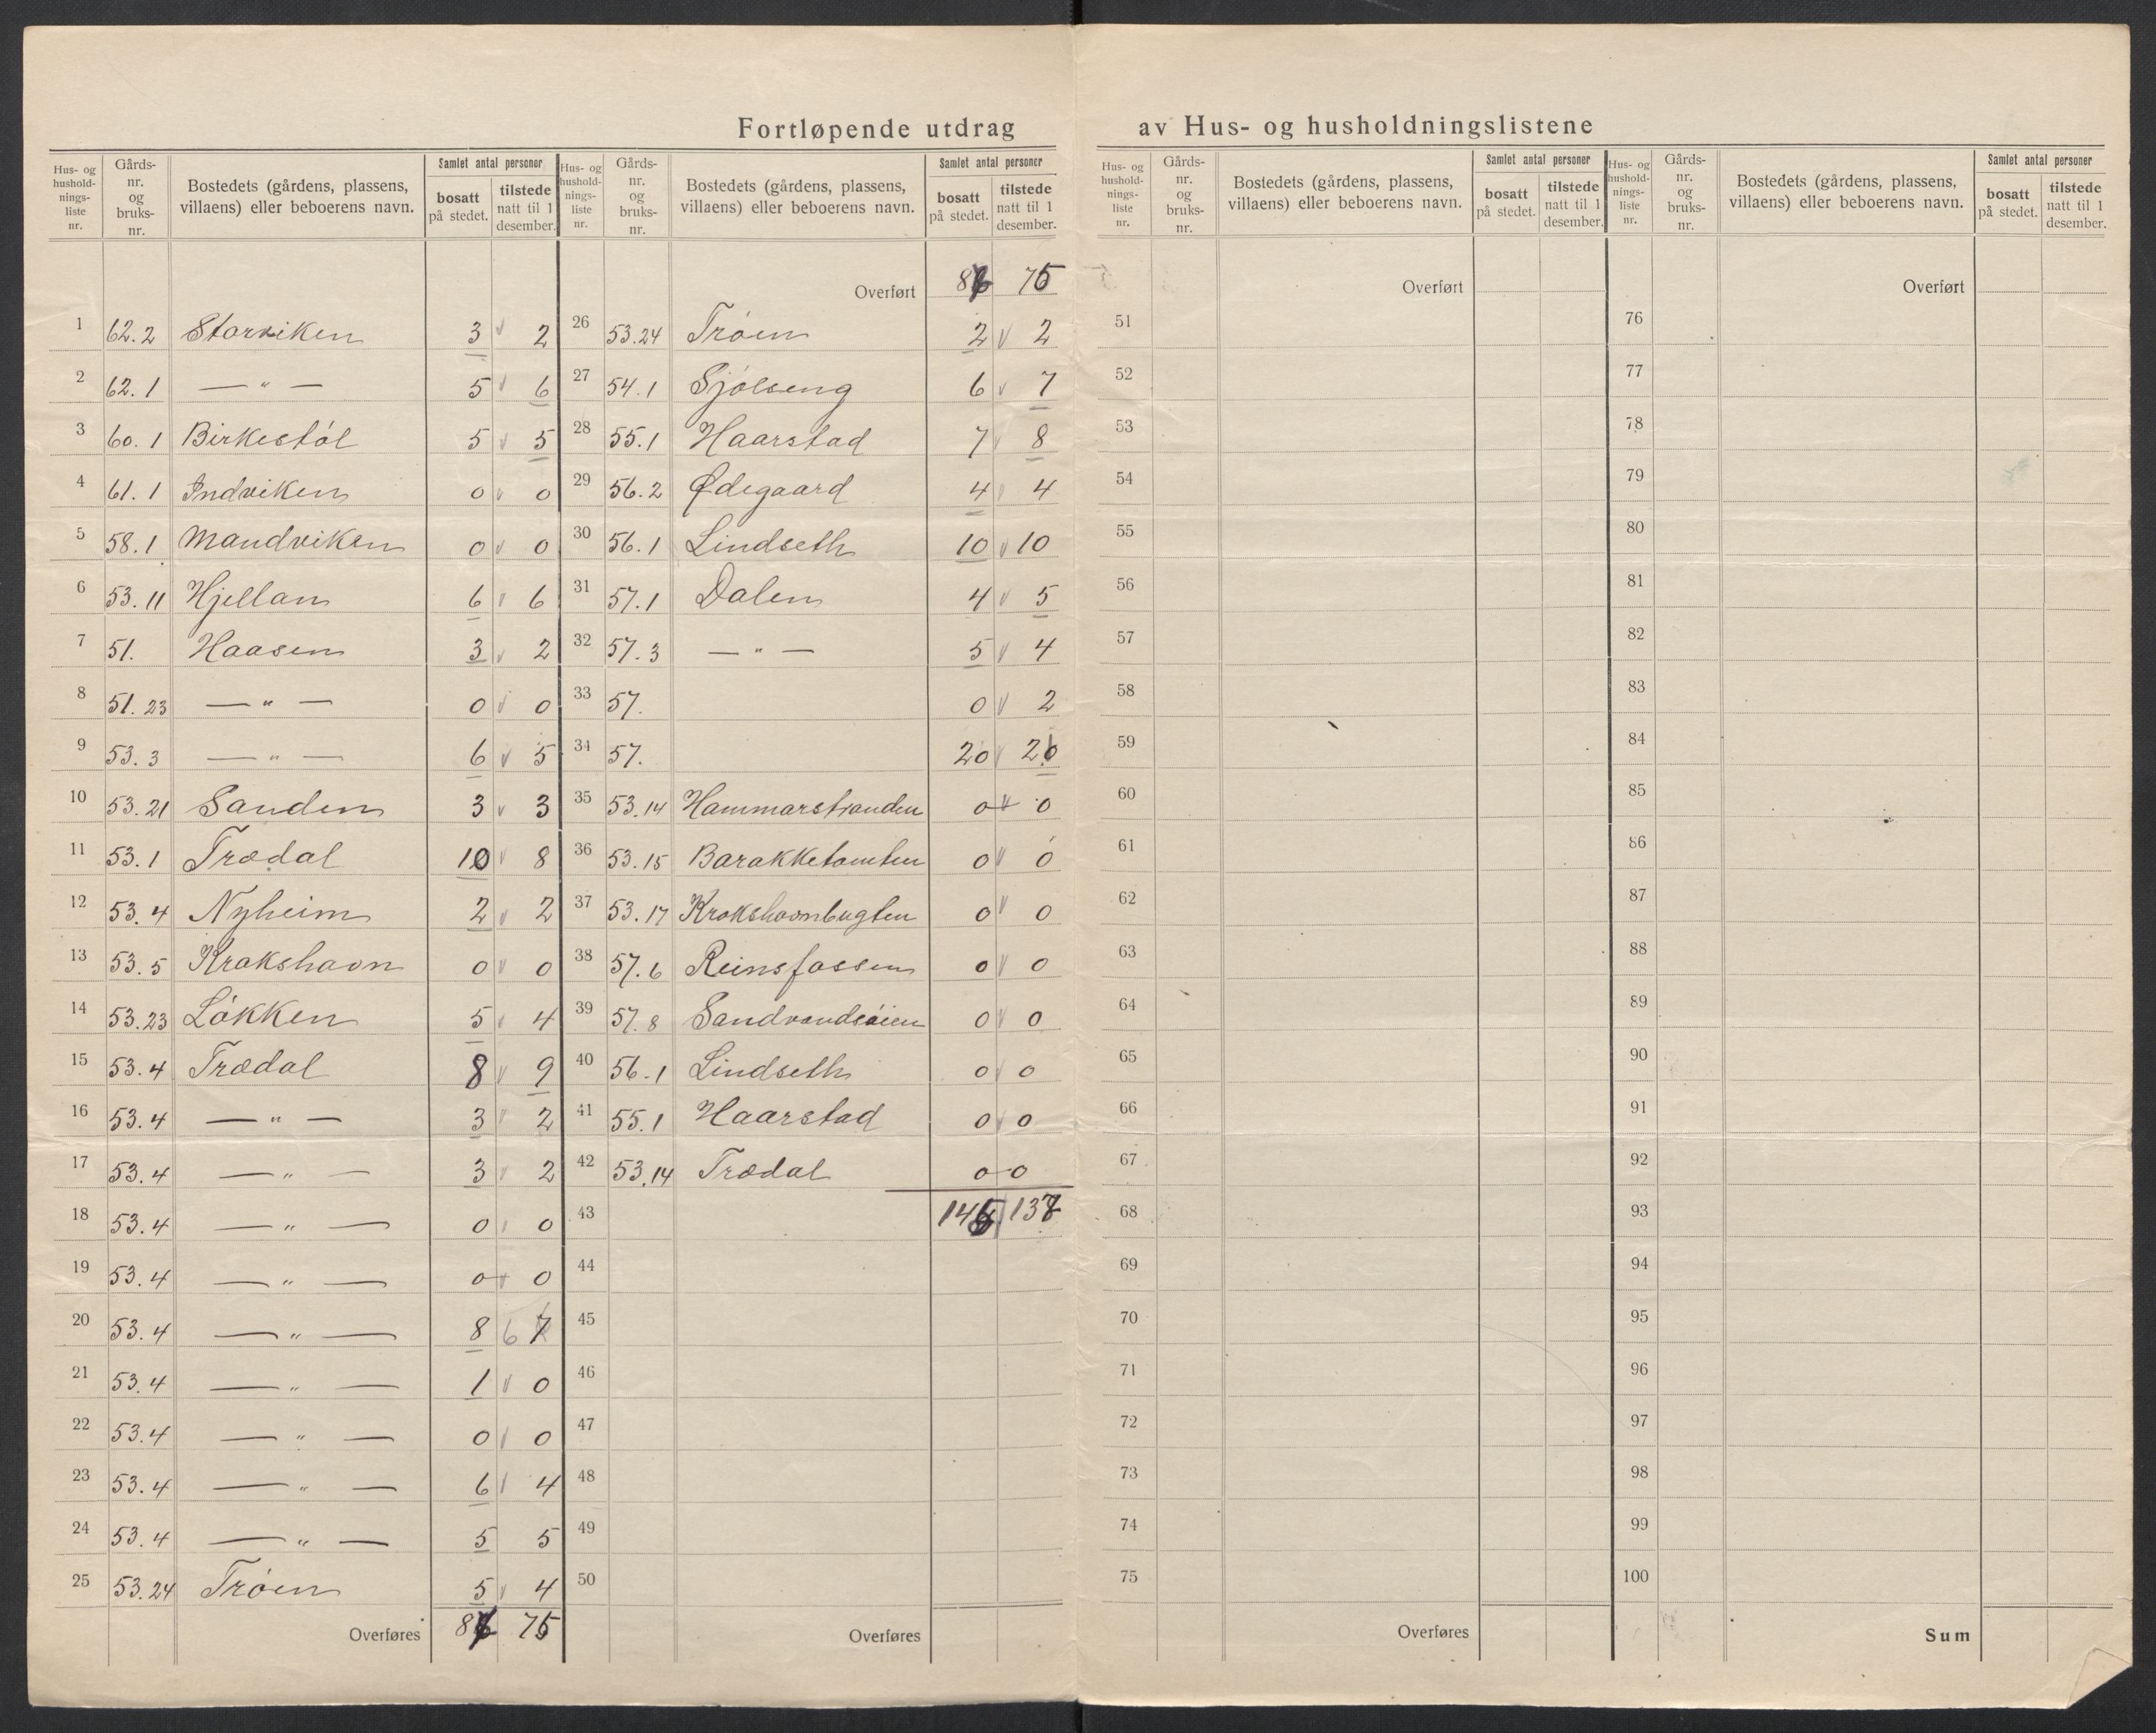 Fortløpende utdrag av Hus- og husholdningslistene
Hus- og husholdnings-liste nr. | Gårds-nr. og bruks-nr. | Bostedets (gårdens, plassens, villaens) eller beboerens navn. | Samlet antal personer | bosatt på stedet. | tilstede natt til 1 desember.
1 62.2 Storviken 3 2
2 62.1 — " — 5 6
3 60.1 Birkestøl 5 5
4 61.1 Indviken 0 0
5 58.1 Mandviken 0 0
6 53.11 Hjellan 6 6
7 51. Haasen 3 2
8 51.23 — " — 0 0
9 53.3 — " — 6 5
10 53.21 Sanden 3 3
11 53.1 Trædal 10 8
12 53.4 Nyheim 2 2
13 53.5 Krokshavn 0 0
14 53.23 Løkken 5 4
15 53.4 Trædal 8 9
16 53.4 — " — 3 2
17 53.4 — " — 3 2
18 53.4 — " — 0 0
19 53.4 — " — 0 0
20 53.4 — " — 8 6 7
21 53.4 — " — 1 0
22 53.4 — " — 0 0
23 53.4 — " — 6 4
24 53.4 — " — 5 5
25 53.24 Trøen 5 4
Overføres 75
Hus- og husholdnings-liste nr. | Gårds-nr. og bruks-nr. | Bostedets (gårdens, plassens, villaens) eller beboerens navn. | Samlet antal personer | bosatt på stedet. | tilstede natt til 1 desember.
Overført 75
26 53.24 Trøen 2 2
27 54.1 Sjølseng 6 7
28 55.1 Haarstad 7 8
29 56.2 Ødegaard 4 4
30 56.1 Lindseth 10 10
31 57.1 Dalen 4 5
32 57.3 — " — 5 4
33 57. 0 2
34 57. 20
35 53.14 Hammarstranden 0 0
36 53.15 Barakketomten 0 0
37 53.17 Krokshavnbugten 0 0
38 57.6 Reinsfossen 0 0
39 57.8 Sandvandsøien 0 0
40 56.1 Lindseth 0 0
41 55.1 Haarstad 0 0
42 53.14 Trædal 0 0
43
44
45
46
47
48
49
50
Overføres
Hus- og husholdnings-liste nr. | Gårds-nr. og bruks-nr. | Bostedets (gårdens, plassens, villaens) eller beboerens navn. | Samlet antal personer | bosatt på stedet. | tilstede natt til 1 desember.
Overført
51
52
53
54
55
56
57
58
59
60
61
62
63
64
65
66
67
68
69
70
71
72
73
74
75
Overføres
Hus- og husholdnings-liste nr. | Gårds-nr. og bruks-nr. | Bostedets (gårdens, plassens, villaens) eller beboerens navn. | Samlet antal personer | bosatt på stedet. | tilstede natt til 1 desember.
Overført
76
77
78
79
80
81
82
83
84
85
86
87
88
89
90
91
92
93
94
95
96
97
98
99
100
Sum